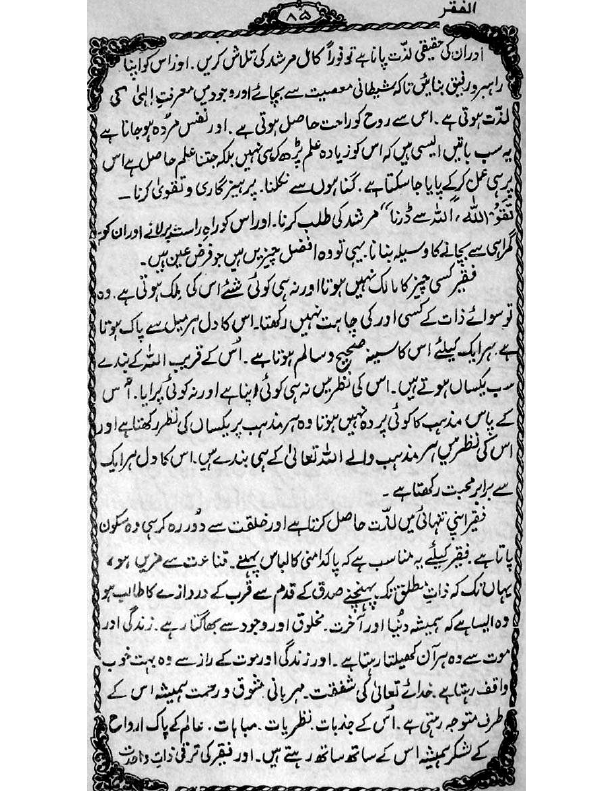 الفقر
۸۵
اور ان کی حقیقی لذت پانا ہے تو فوراً کامل مرشد کی تلاش کریں۔ اور اس کو اپنا
راہبر و رفیق بنائیں تاکہ شیطانی معصیت سے بچائے اور وجود میں معرفتِ الٰہی کی
لذت ہوتی ہے۔ اس سے روح کو راحت حاصل ہوتی ہے۔ اور نفس مردہ ہو جاتا ہے
یہ سب باتیں ایسی ہیں کہ اس کو زیادہ علم پڑھ کر ہی نہیں بلکہ جتنا علم حاصل ہے اس
پر ہی عمل کر کے پایا جا سکتا ہے۔ گناہوں سے نکلنا۔ پرہیزگاری و تقویٰ کرنا۔
تقو اللہ "اللہ سے ڈرنا" مرشد کی طلب کرنا۔ اور اس کو راہِ راست پر لانے اور ان کو
گمراہی سے بچانے کا وسیلہ بنانا یہی تو وہ افضل چیزیں ہیں جو فرض عین ہیں۔
فقیر کسی چیز کا مالک نہیں ہوتا اور نہ ہی کوئی شئے اس کی ملک ہوتی ہے۔ وہ
تو سوائے ذات کے کسی اور کی چاہت نہیں رکھتا۔ اس کا دل ہر میل سے پاک ہوتا
ہے ہر ایک کیلئے اس کا سینہ صحیح و سالم ہوتا ہے۔ اُس کے قریب اللہ کے بندے
سب یکساں ہوتے ہیں۔ اس کی نظر میں نہ ہی کوئی اپنا ہے اور نہ کوئی پرایا۔ اُس
کے پاس مذہب کا کوئی پردہ نہیں ہوتا وہ ہر مذہب پر یکساں کی نظر رکھتا ہے اور
اس کی نظر میں ہر مذہب والے اللہ تعالیٰ کے ہی بندے ہیں۔ اس کا دل ہر ایک
سے برابر محبت رکھتا ہے۔
فقیر اپنی تنہائی میں لذت حاصل کرتا ہے اور خلقت سے دُور رہ کر ہی وہ سکون
پاتا ہے۔ فقیر کیلئے یہ مناسب ہے کہ پاکدامنی کا لباس پہنے۔ قناعت سے مزیں ہو،
یہاں تک کہ ذاتِ مطلق تک پہنچنے صدق کے قدم سے قرب کے دروازے کا طالب ہو
وہ ایسا ہے کہ ہمیشہ دُنیا اور آخرت۔ مخلوق اور وجود سے بھاگتا رہے۔ زندگی اور
موت سے وہ ہر آن کھیلتا رہتا ہے۔ اور زندگی اور موت کے راز سے وہ بہت خوب
واقف رہتا ہے۔ خدائے تعالیٰ کی شفقت۔ مہربانی شوق و رحمت ہمیشہ اس کے
طرف متوجہ رہتی ہے۔ اُس کے جذبات۔ نظریات۔ مباہات۔ عالم کے پاک ارواح
کے لشکر ہمیشہ اس کے ساتھ ساتھ رہتے ہیں۔ اور فقیر کی ترقی ذاتِ واحدت